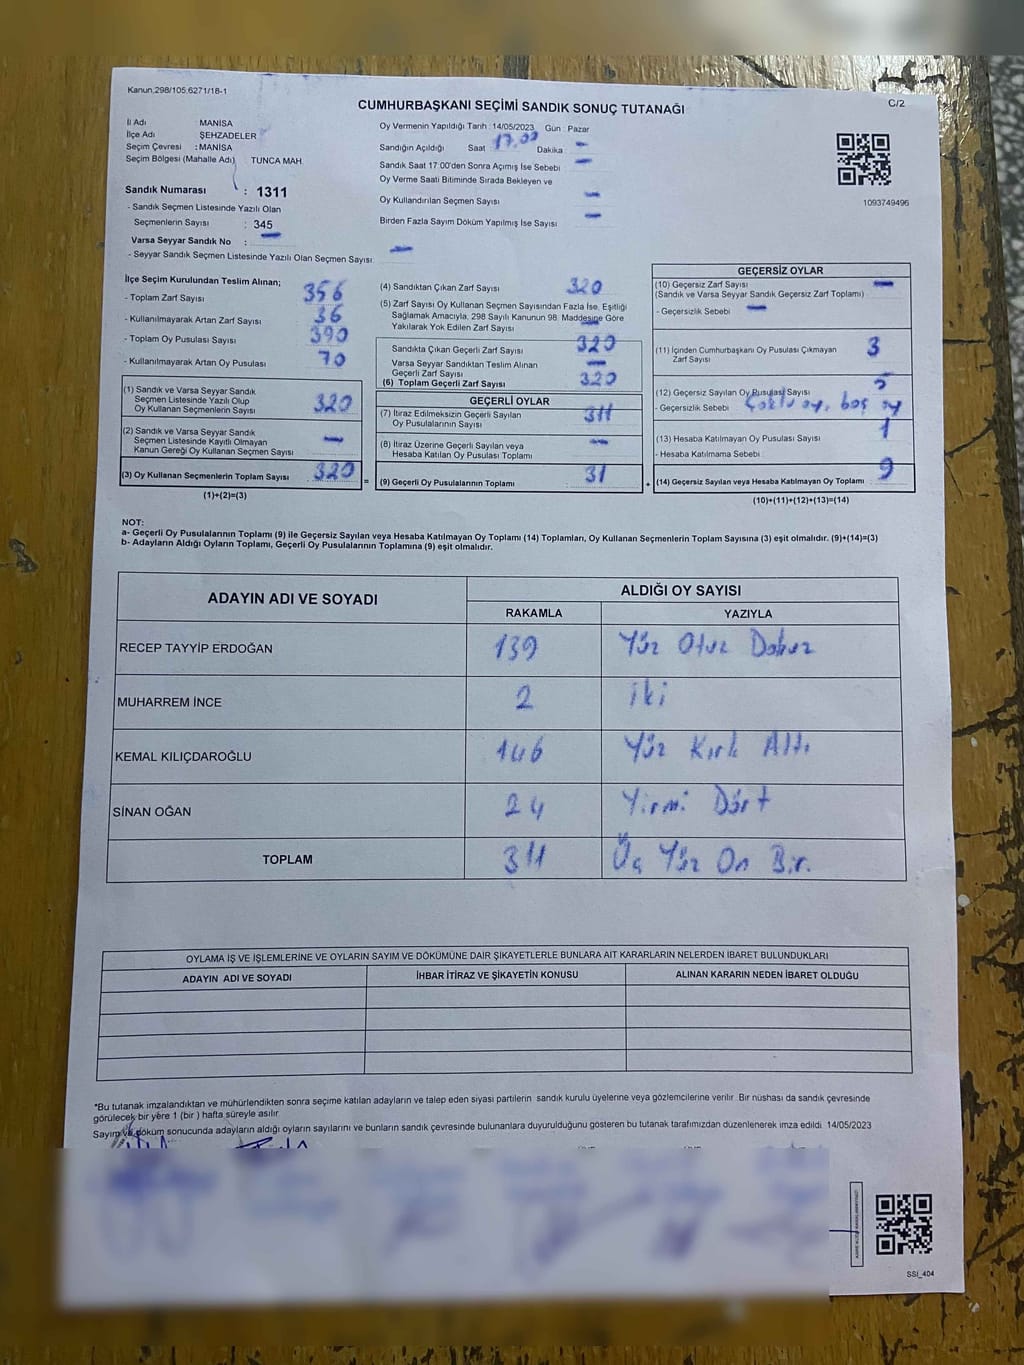 Kanun,298/105,6271/18-1
CUMHURBAŞKANI SEÇİMİ SANDIK SONUÇ TUTANAĞI
C/2
İl Adı MANİSA
İlçe Adı ŞEHZADELER
Seçim Çevresi : MANİSA
Seçim Bölgesi (Mahalle Adı) TUNCA MAH.
Sandık Numarası : 1311
- Sandık Seçmen Listesinde Yazılı Olan
Seçmenlerin Sayısı : 345
Varsa Seyyar Sandık No : -
- Seyyar Sandık Seçmen Listesinde Yazılı Olan Seçmen Sayısı: -
Oy Vermenin Yapıldığı Tarih : 14/05/2023 Gün : Pazar
Sandığın Açıldığı Saat : 17.00 Dakika : -
Sandık Saat 17:00'den Sonra Açımış İse Sebebi : -
Oy Verme Saati Bitiminde Sırada Bekleyen ve
Oy Kullandırılan Seçmen Sayısı : -
Birden Fazla Sayım Döküm Yapılmış İse Sayısı : -
1093749496
İlçe Seçim Kurulundan Teslim Alınan;
- Toplam Zarf Sayısı : 356
- Kullanılmayarak Artan Zarf Sayısı : 36
- Toplam Oy Pusulası Sayısı : 390
- Kullanılmayarak Artan Oy Pusulası : 70
(1) Sandık ve Varsa Seyyar Sandık
Seçmen Listesinde Yazılı Olup
Oy Kullanan Seçmenlerin Sayısı : 320
(2) Sandık ve Varsa Seyyar Sandık
Seçmen Listesinde Kayıtlı Olmayan
Kanun Gereği Oy Kullanan Seçmen Sayısı : -
(3) Oy Kullanan Seçmenlerin Toplam Sayısı : 320
(1)+(2)=(3)
(4) Sandıktan Çıkan Zarf Sayısı : 320
(5) Zarf Sayısı Oy Kullanan Seçmen Sayısından Fazla İse, Eşitliği
Sağlamak Amacıyla, 298 Sayılı Kanunun 98. Maddesine Göre
Yakılarak Yok Edilen Zarf Sayısı : -
Sandıkta Çıkan Geçerli Zarf Sayısı : 320
Varsa Seyyar Sandıktan Teslim Alınan
Geçerli Zarf Sayısı : -
(6) Toplam Geçerli Zarf Sayısı : 320
GEÇERLİ OYLAR
(7) İtiraz Edilmeksizin Geçerli Sayılan
Oy Pusulalarının Sayısı : 311
(8) İtiraz Üzerine Geçerli Sayılan veya
Hesaba Katılan Oy Pusulası Toplamı : -
= (9) Geçerli Oy Pusulalarının Toplamı : 31
GEÇERSİZ OYLAR
(10) Geçersiz Zarf Sayısı : -
(Sandık ve Varsa Seyyar Sandık Geçersiz Zarf Toplamı)
- Geçersizlik Sebebi : -
(11) İçinden Cumhurbaşkanı Oy Pusulası Çıkmayan
Zarf Sayısı : 3
(12) Geçersiz Sayılan Oy Pusulası Sayısı : 5
- Geçersizlik Sebebi : Çoklu oy, boş oy
(13) Hesaba Katılmayan Oy Pusulası Sayısı : 1
- Hesaba Katılmama Sebebi :
+ (14) Geçersiz Sayılan veya Hesaba Katılmayan Oy Toplamı : 9
(10)+(11)+(12)+(13)=(14)
NOT:
a- Geçerli Oy Pusulalarının Toplamı (9) ile Geçersiz Sayılan veya Hesaba Katılmayan Oy Toplamı (14) Toplamları, Oy Kullanan Seçmenlerin Toplam Sayısına (3) eşit olmalıdır. (9)+(14)=(3)
b- Adayların Aldığı Oyların Toplamı, Geçerli Oy Pusulalarının Toplamına (9) eşit olmalıdır.
ADAYIN ADI VE SOYADI ALDIĞI OY SAYISI
RAKAMLA YAZIYLA
RECEP TAYYİP ERDOĞAN 139 Yüz Otuz Dokuz
MUHARREM İNCE 2 iki
KEMAL KILIÇDAROĞLU 146 Yüz Kırk Altı
SİNAN OĞAN 24 Yirmi Dört
TOPLAM 311 Üç Yüz On Bir.
OYLAMA İŞ VE İŞLEMLERİNE VE OYLARIN SAYIM VE DÖKÜMÜNE DAİR ŞİKAYETLERLE BUNLARA AİT KARARLARIN NELERDEN İBARET BULUNDUKLARI
ADAYIN ADI VE SOYADI İHBAR İTİRAZ VE ŞİKAYETİN KONUSU ALINAN KARARIN NEDEN İBARET OLDUĞU
*Bu tutanak imzalandıktan ve mühürlendikten sonra seçime katılan adayların ve talep eden siyasi partilerin sandık kurulu üyelerine veya gözlemcilerine verilir. Bir nüshası da sandık çevresinde
görülecek bir yere 1 (bir) hafta süreyle asılır.
Sayım ve döküm sonucunda adayların aldığı oyların sayılarını ve bunların sandık çevresinde bulunanlara duyurulduğunu gösteren bu tutanak tarafımızdan düzenlenerek imza edildi. 14/05/2023
SSI_404